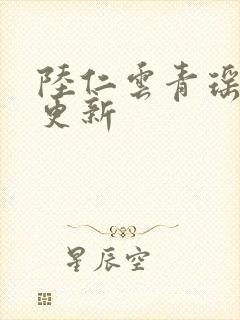 陸仁雲青瑶
更新
星辰空